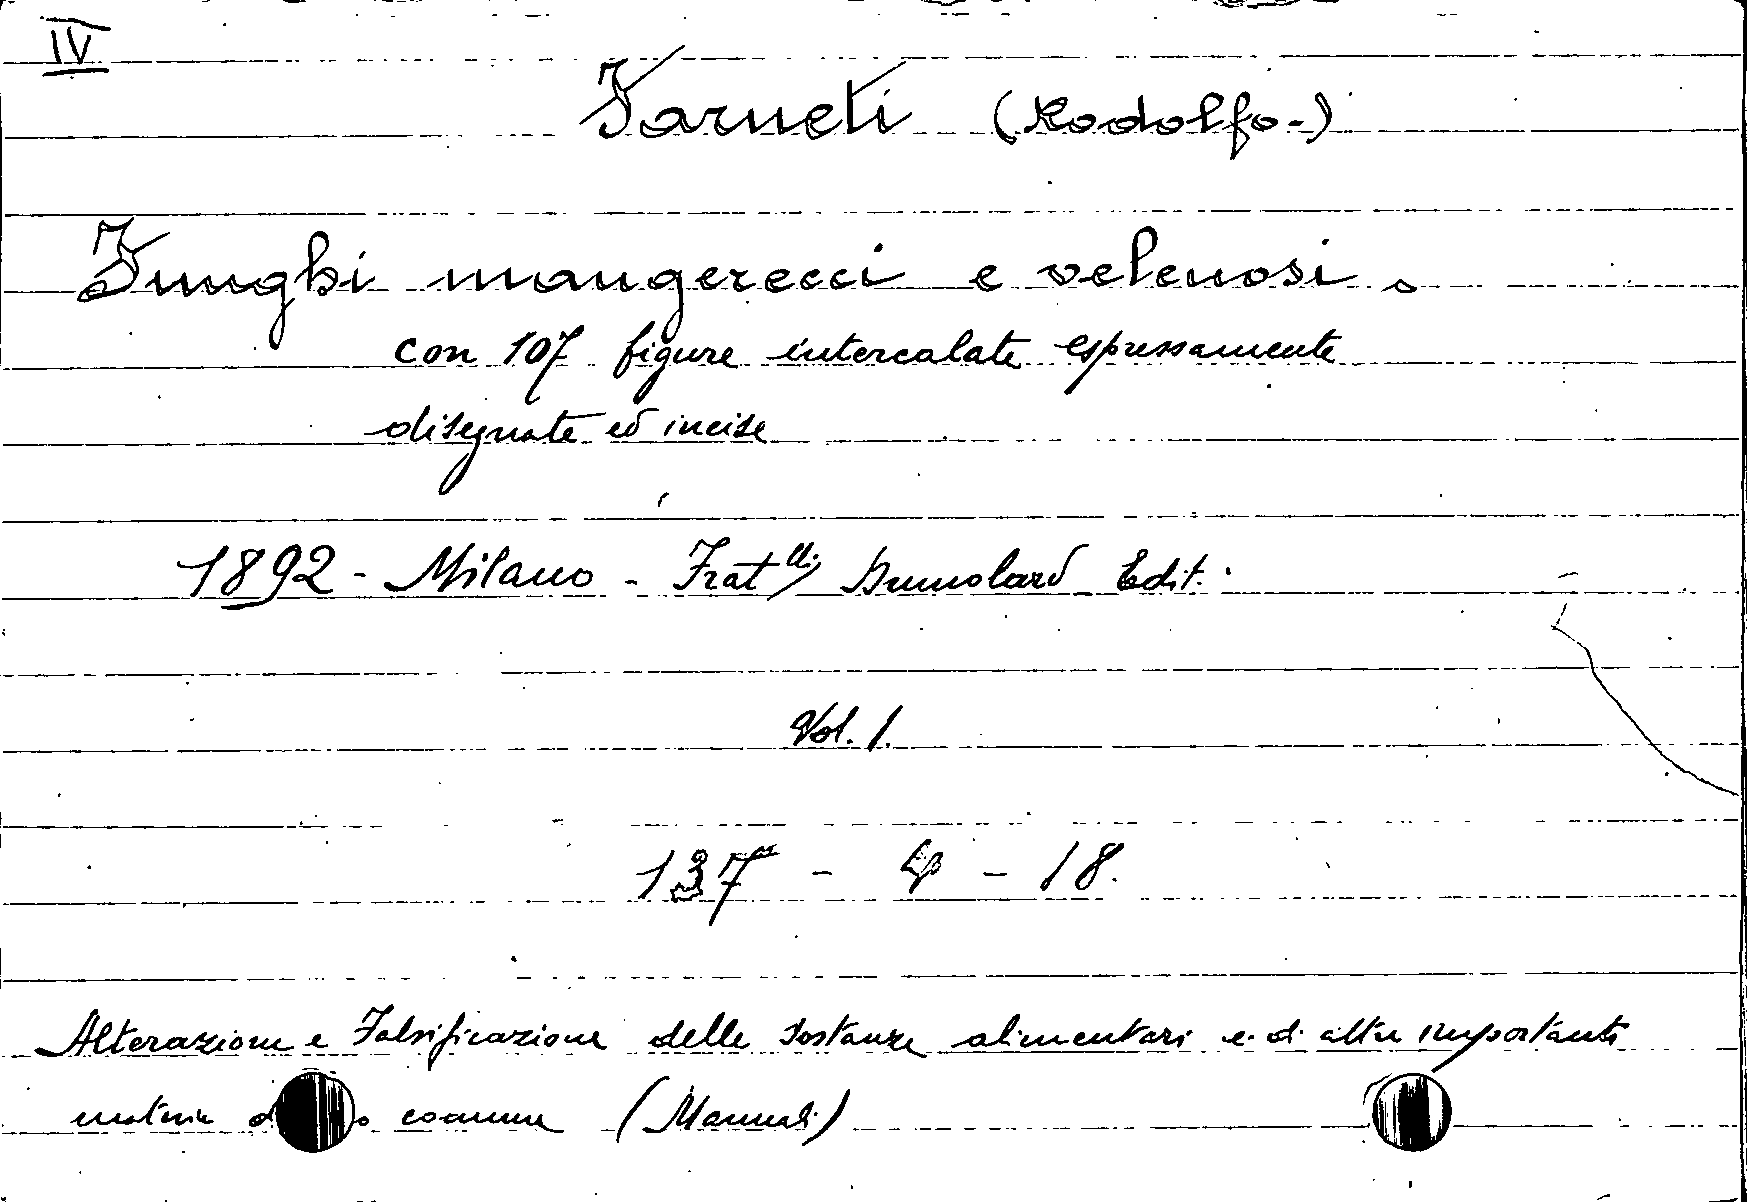 IV
Farneti (Rodolfo-)
Funghi mangerecci e velenosi.
con 107 figure intercalate espressamente
disegnate ed incise
1892 - Milano - Frat^lli Dumolard Edit.
Vol. 1.
137 - - 18.
Alterazione e Falsificazione delle sostanze alimentari e di altre importanti
materie comune (Manuali)